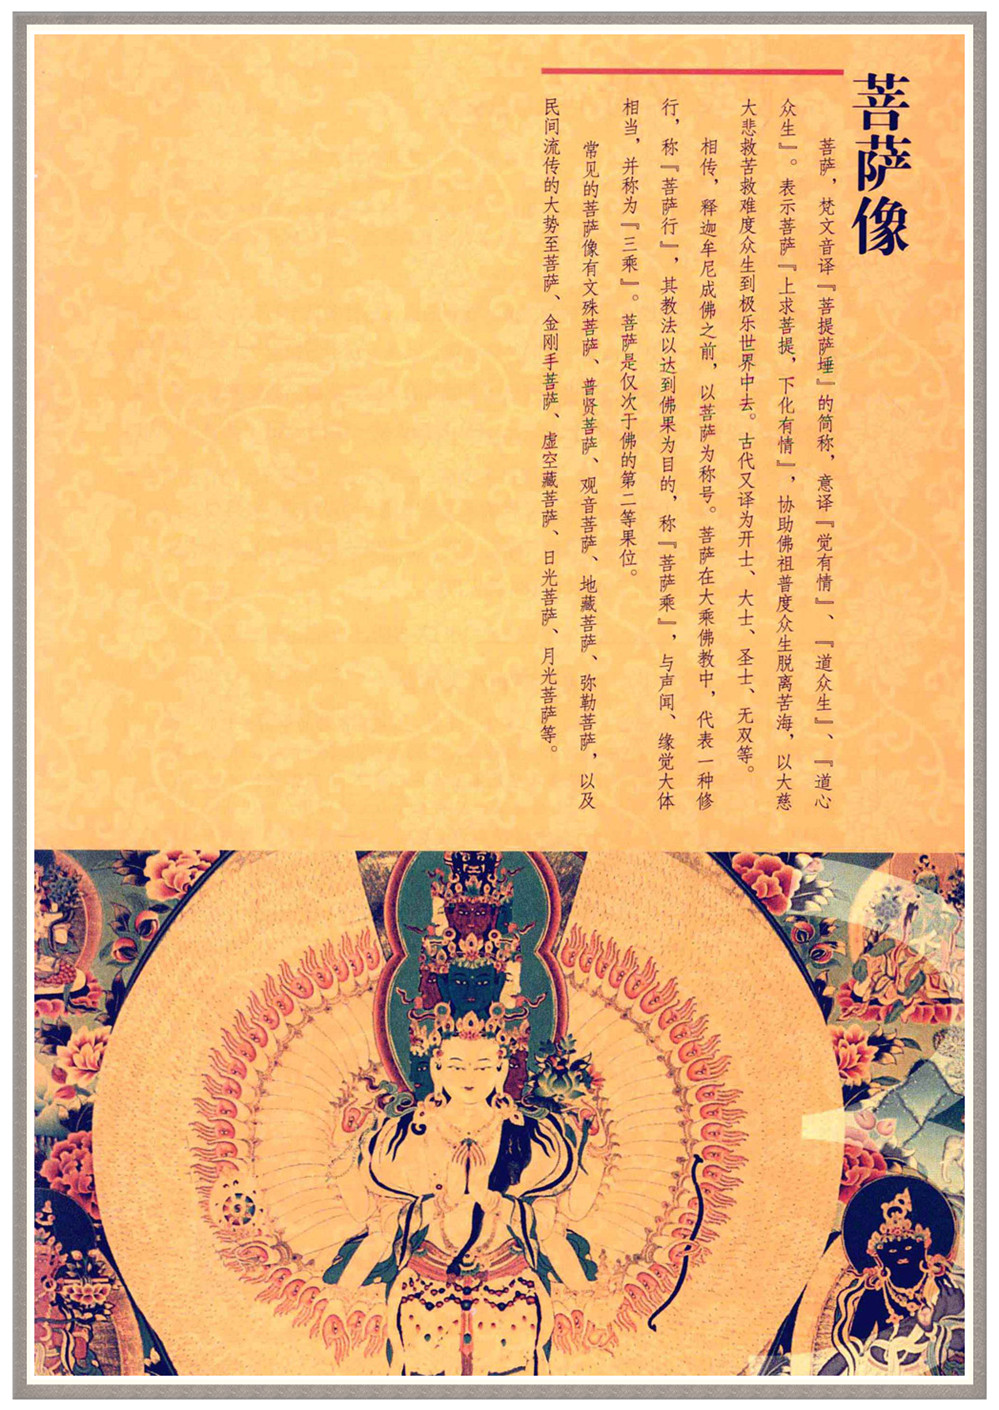 菩萨像
菩萨，梵文音译『菩提萨埵』的简称，意译『觉有情』、『道众生』、『道心
众生』。表示菩萨『上求菩提，下化有情』，协助佛祖普度众生脱离苦海，以大慈
大悲救苦救难度众生到极乐世界中去。古代又译为开士、大士、圣士、无双等。
相传，释迦牟尼成佛之前，以菩萨为称号。菩萨在大乘佛教中，代表一种修
行，称『菩萨行』，其教法以达到佛果为目的，称『菩萨乘』，与声闻、缘觉大体
相当，并称为『三乘』。菩萨是仅次于佛的第二等果位。
常见的菩萨像有文殊菩萨、普贤菩萨、观音菩萨、地藏菩萨、弥勒菩萨，以及
民间流传的大势至菩萨、金刚手菩萨、虚空藏菩萨、日光菩萨、月光菩萨等。